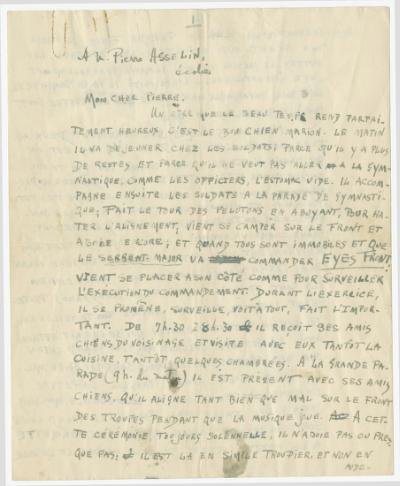 1
A M. Pierre ASSELIN,
écolier
MON CHER PIERRE.
UN ÊTRE QUE LE BEAU TEMPS REND PARFAI-
TEMENT HEUREUX C'EST LE BON CHIEN MARION. LE MATIN
IL VA DEJEUNER CHEZ LES SOLDATS, PARCE QU'IL Y A PLUS
DE RESTES ET PARCE QU'IL NE VEUT PAS ALLER A LA GYM-
NASTIQUE, COMME LES OFFICIERS, L'ESTOMAC VIDE. IL ACCOM-
PAGNE ENSUITE LES SOLDATS A LA PARADE DE GYMNASTI-
QUE; FAIT LE TOUR DES PELOTONS EN ABOYANT, POUR HA-
TER L'ALIGNEMENT, VIENT SE CAMPER SUR LE FRONT ET
ABOIE ENCORE; ET QUAND TOUS SONT IMMOBILES ET QUE
LE SERGENT-MAJOR VA COMMANDER EYES FRONT
VIENT SE PLACER A SON CÔTÉ COMME POUR SURVEILLER
L'EXECUTION DU COMMANDEMENT. DURANT L'EXERCICE,
IL SE PROMÈNE, SURVEILLE, VOIT A TOUT, FAIT L'IMPOR-
TANT. DE 7h.30 A 8h.30 IL REÇOIT SES AMIS
CHIENS DU VOISINAGE ET VISITE AVEC EUX TANTÔT LA
CUISINE, TANTÔT, QUELQUES CHAMBRÉES. A LA GRANDE PA-
RADE (9h. du matin) IL EST PRÉSENT AVEC SES AMIS
CHIENS, QU'IL ALIGNE TANT BIEN QUE MAL SUR LE FRONT
DES TROUPES PENDANT QUE LA MUSIQUE JOUE. A CET-
TE CÉRÉMONIE, TOUJOURS SOLENNELLE, IL N'ABOIE PAS OU PRES-
QUE PAS; IL EST LA EN SIMPLE TROUPIER, ET NON EN